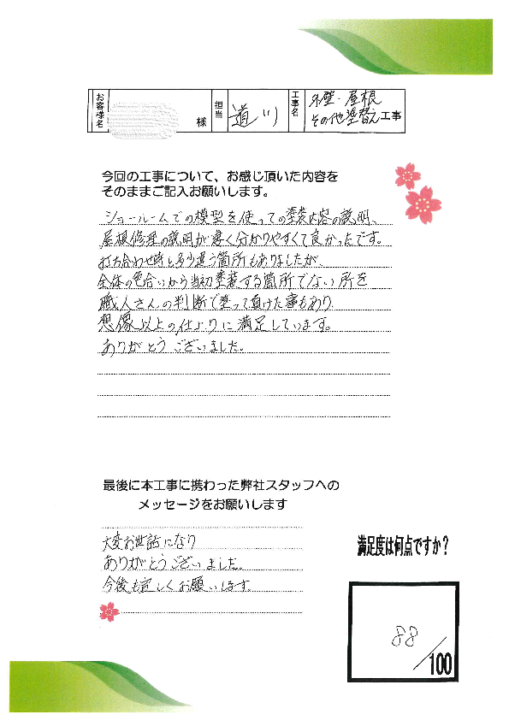 お客様名 様 担当 道川 工事名 外壁・屋根
その他塗替え工事
今回の工事について、お感じ頂いた内容を
そのままご記入お願いします。
ショールームでの模型を使っての塗装内容の説明、
屋根修理の説明が凄く分かりやすくて良かったです。
打ち合わせ時と多少違う箇所もありましたが、
全体の色合いから当初塗装する箇所でない所を
職人さんの判断で塗って頂けた事もあり
想像以上の仕上りに満足しています。
ありがとうございました。
最後に本工事に携わった弊社スタッフへの
メッセージをお願いします
大変お世話になり
ありがとうございました。
今後も宜しくお願いします。
満足度は何点ですか?
88
/100